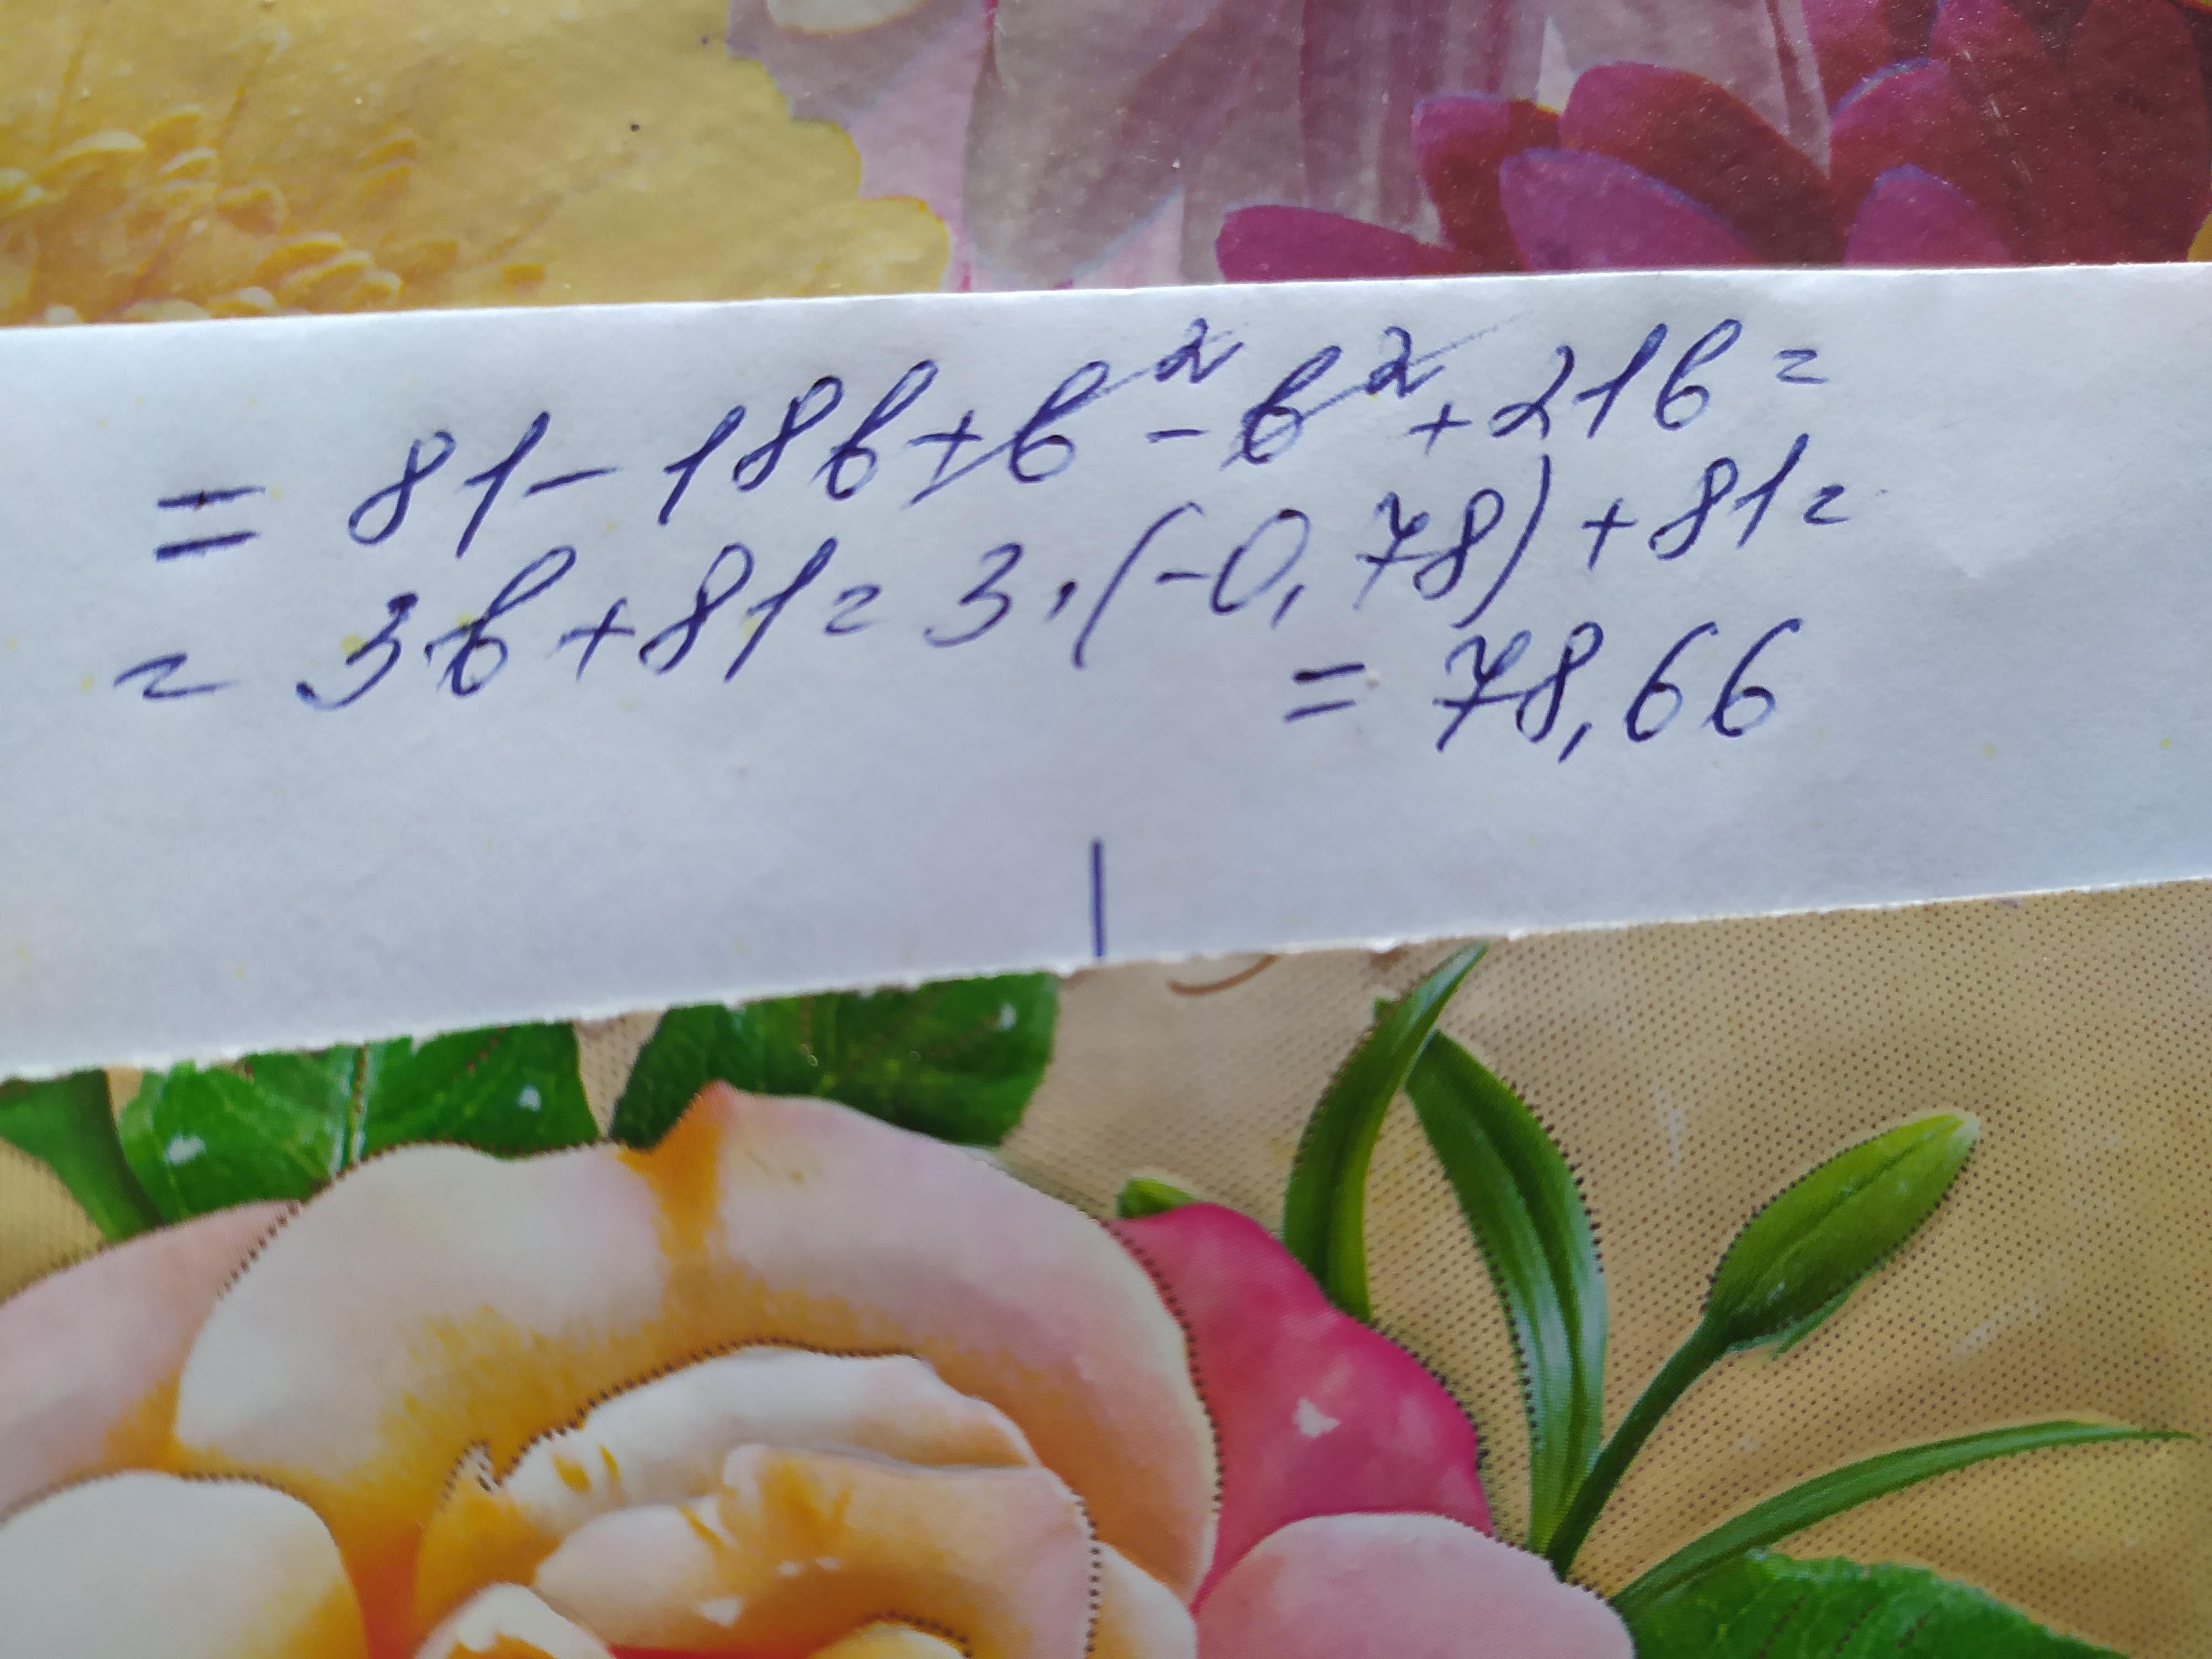 = 81 - 18b + b² - b² + 21b =
= 3b + 81 = 3 · (-0,78) + 81 =
= 78,66